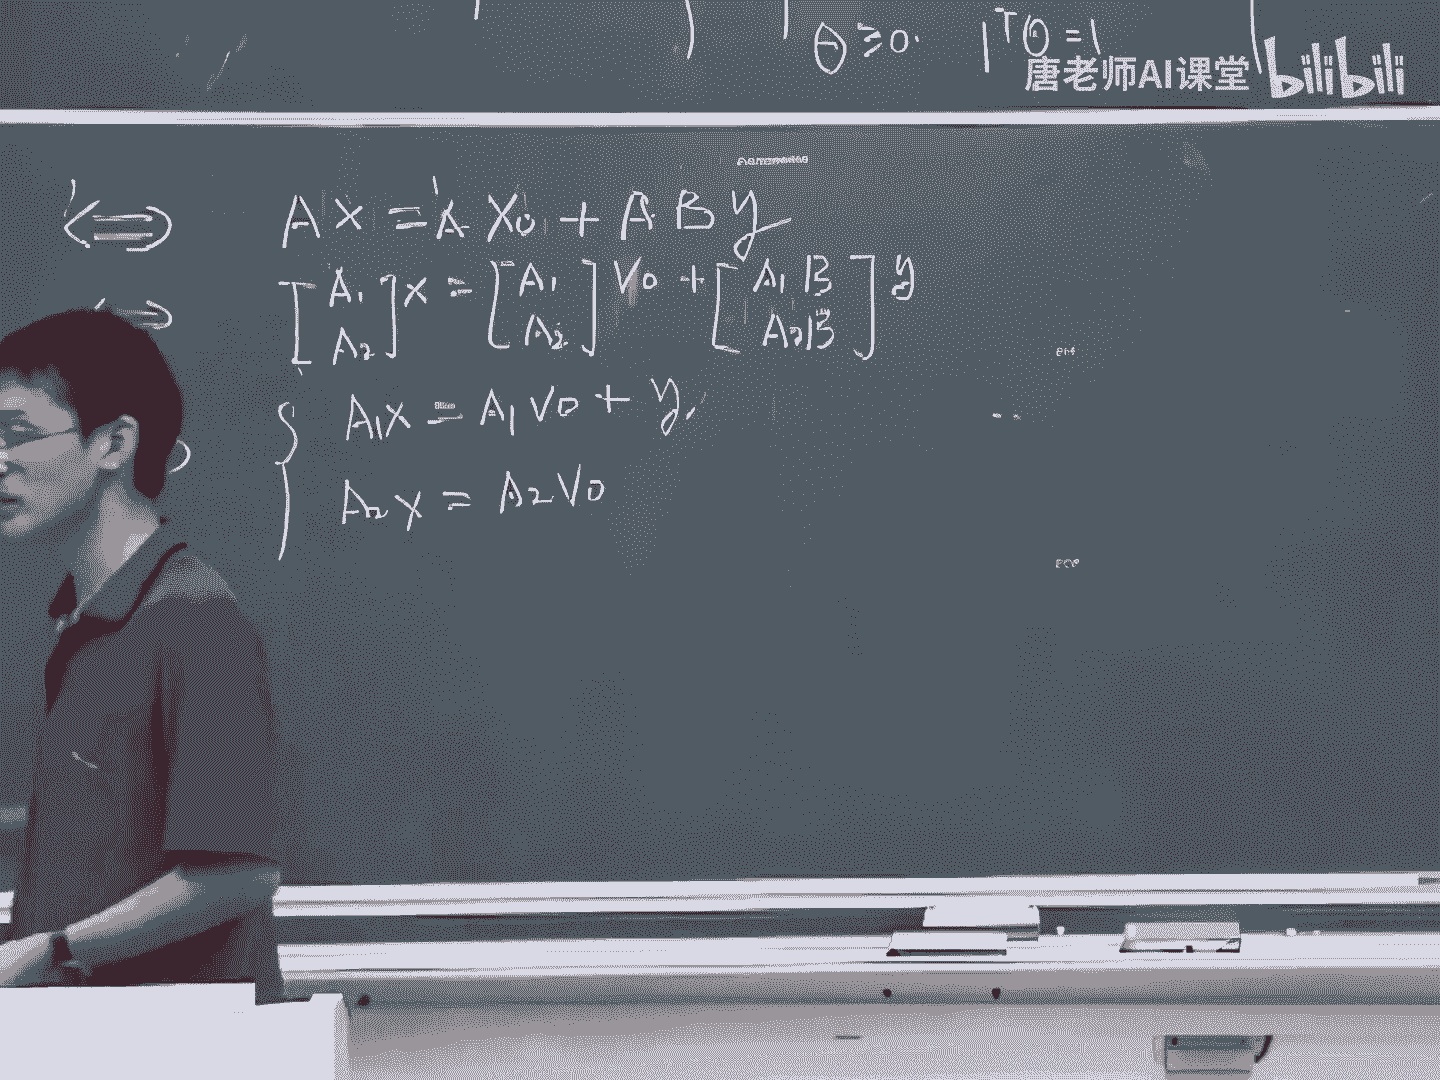 θ ≥ 0. 1ᵀθ = 1
唐老师AI课堂 bilibili
⟺ Ax = A X₀ + A B y
[A₁ A₂] x = [A₁ A₂] V₀ + [A₁B A₂B] y
A₁x = A₁V₀ + y,
A₂x = A₂V₀